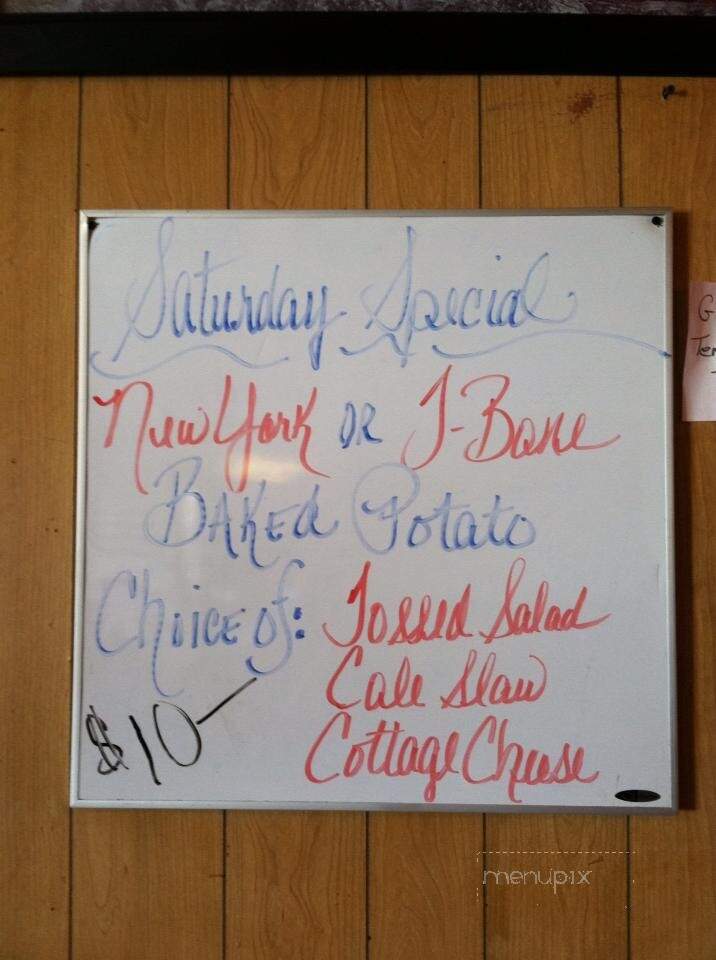 Saturday Special
New York OR T-Bone
BAKEd Potato
ChoiceOf: Tossed Salad
Cole Slaw
Cottage Cheese
$10-
G
Ter
menupix